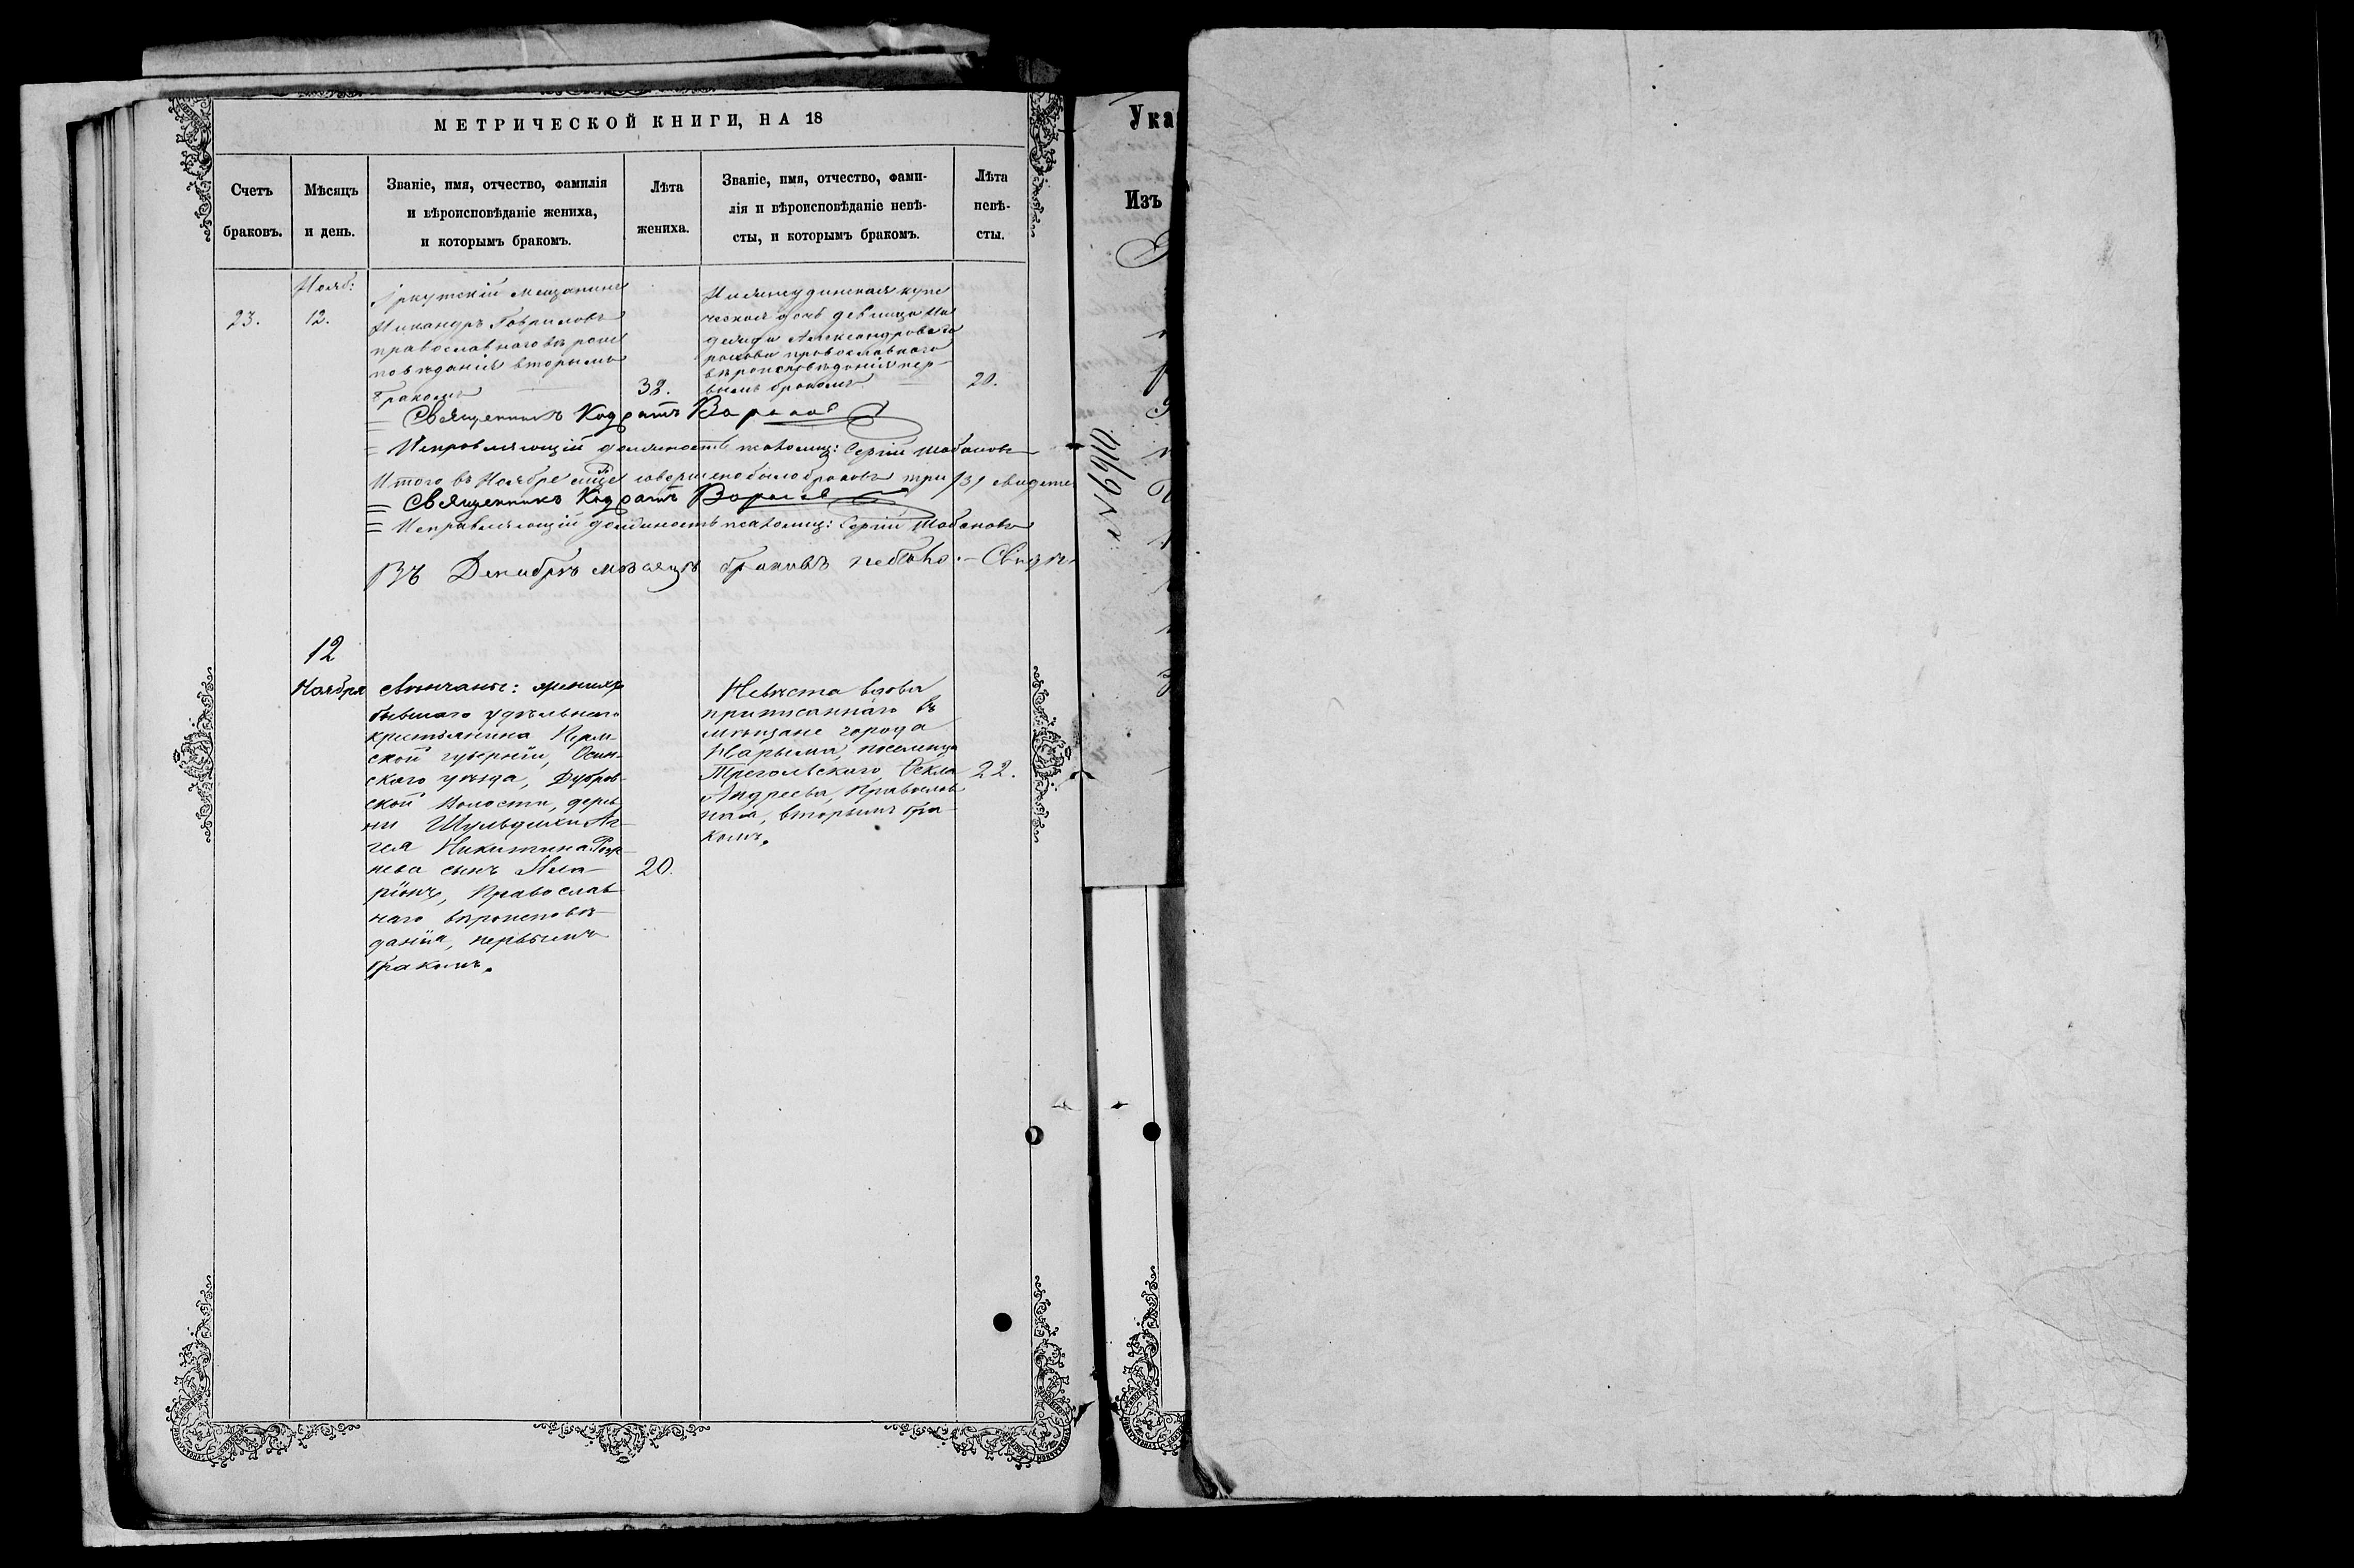 МЕТРИЧЕСКОЙ КНИГИ, НА 18
Счетъ
браковъ.
Мѣсяцъ
и день.
Званіе, имя, отчество, фамилія
и вѣроисповѣданіе жениха,
и которымъ бракомъ.
Лѣта
жениха.
Званіе, имя, отчество, фами-
лія и вѣроисповѣданіе невѣ-
сты, и которымъ бракомъ.
Лѣта
невѣ-
сты.
23.
Нояб:
12.
Иркутскій мещанинъ
Никандръ Гавриловъ
православнаго вѣроис
повѣданія вторымъ
бракомъ
32.
Нижнеудинская купе
ческая дочь девица На
дежда Александрова
православнаго
вѣроисповѣданія пер-
вымъ бракомъ
20.
Священникъ Кодратъ
Исправляющій должность псаломщ: Сергій Шабановъ
Итого въ Ноябре совершено было браковъ три /3/
Священникъ Кодратъ
Исправляющій должность псаломщ: Сергій Шабановъ
Въ Декабрѣ мѣсяцѣ браковъ небыло. —
12
Ноября
Вѣнчаны: женихъ
бывшаго удѣльнаго
крестьянина Перм
ской губерніи, Осин-
скаго уѣзда, Дубров-
ской волости, дерев
ни
Никитина
нева сынъ Ила-
ріонъ, Православ
наго вѣроисповѣ-
данія, первымъ
бракомъ.
20.
Невѣста вдова
приписаннаго въ
мѣщане города
Нарыма, поселенца
Андреева, Православ
ная, вторымъ бра-
комъ.
22.
Ука
Изъ